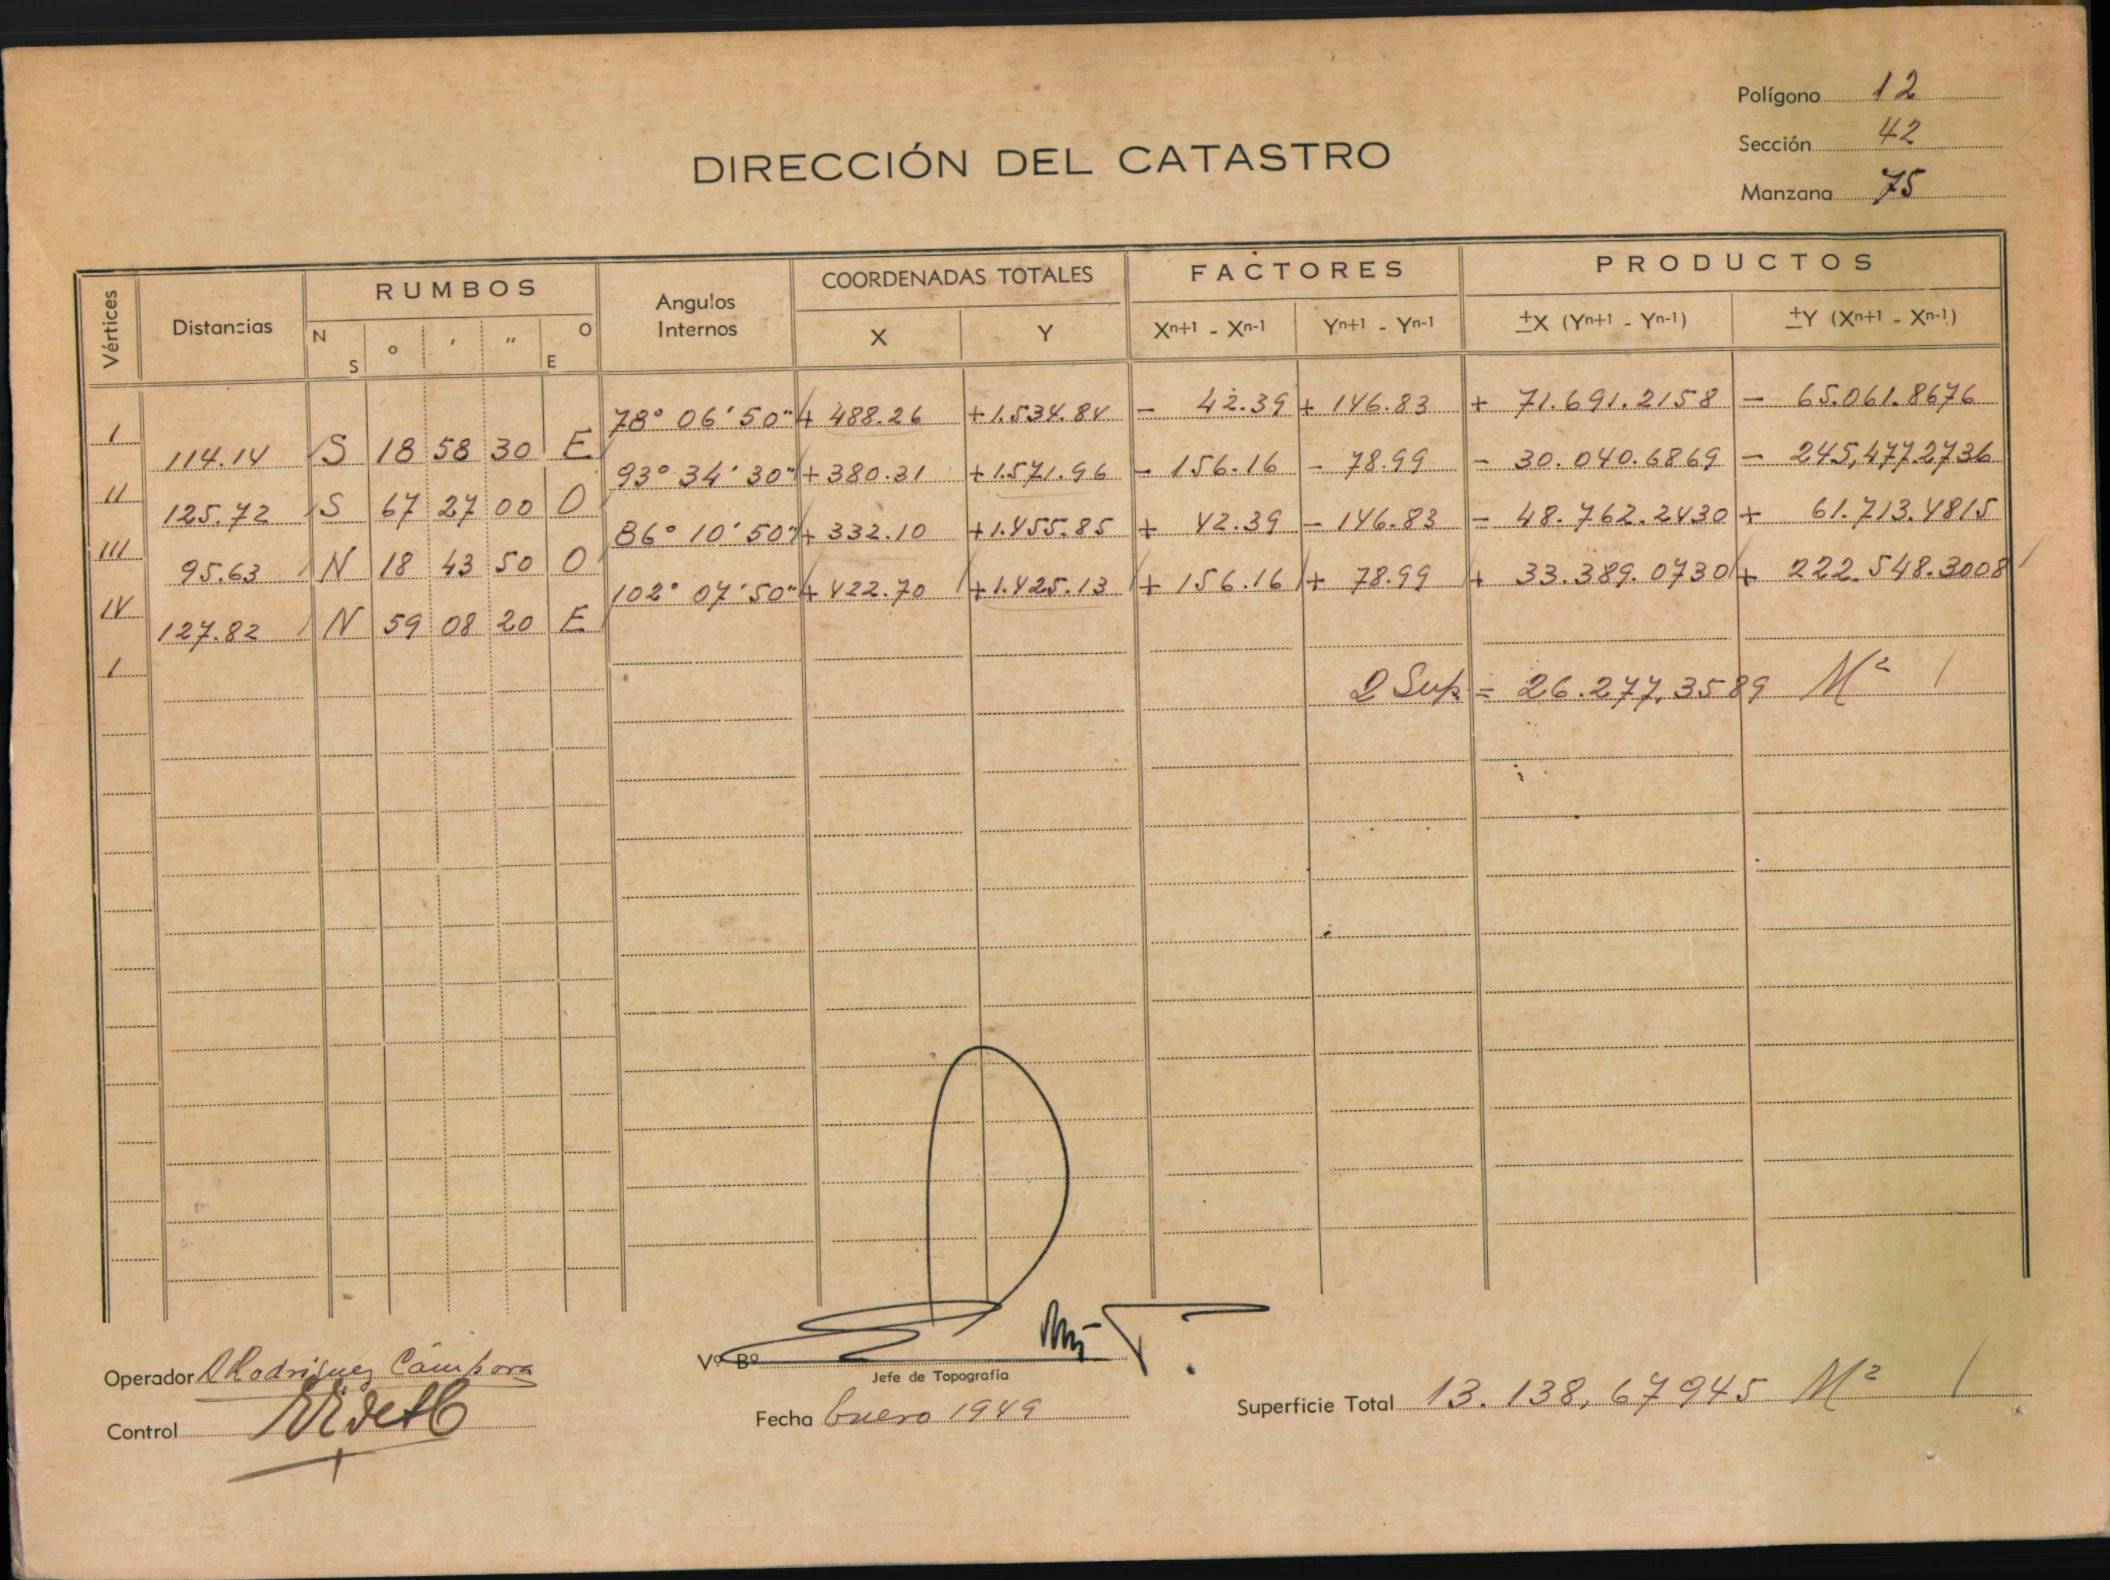 Polígono 12
Sección 42
Manzana 75
DIRECCIÓN DEL CATASTRO
Vértices Distancias RUMBOS Angulos Internos COORDENADAS TOTALES FACTORES PRODUCTOS
N S ° ' " O E X Y Xn+1 - Xn-1 Yn+1 - Yn-1 ±X (Yn+1 - Yn-1) ±Y (Xn+1 - Xn-1)
I 78° 06' 50" + 488.26 + 1.534.84 - 42.39 + 146.83 + 71.691.2158 - 65.061.8676
114.14 S 18 58 30 E
II 93° 34' 30" + 380.31 + 1.571.96 - 156.16 - 78.99 - 30.040.6869 - 245,477.2736
125.72 S 67 27 00 O
III 86° 10' 50" + 332.10 + 1.455.85 + 42.39 - 146.83 - 48.762.2430 + 61.713.4815
95.63 N 18 43 50 O
IV 102° 07' 50" + 422.70 + 1.425.13 + 156.16 + 78.99 + 33.389.0730 + 222.548.3008
127.82 N 59 08 20 E
I
2 Sup. = 26.277,3589 M²
Operador Rodriguez Cámpora
Control
Vº Bº
Jefe de Topografía
Fecha Enero 1949
Superficie Total 13.138,67945 M²